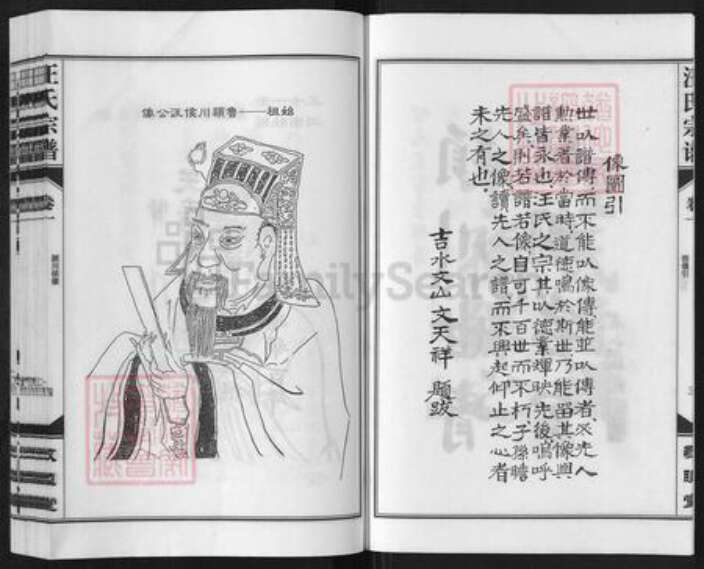 汪氏宗譜
卷一
像圖引
世以譜傳而不能以像傳能並以傳者必先人
勲業著於當時道德鳴於斯世乃能畱其像與
譜皆永也汪氏之宗其以德業輝映先後嗚呼
盛矣則若譜若像自可千百世而不朽子孫瞻
先人之像讀先人之譜而不興起仰止之心者
未之有也。
吉水文山文天祥 題跋
始祖——魯潁川侯汪公像
汪氏宗譜
卷一
FamilySearch